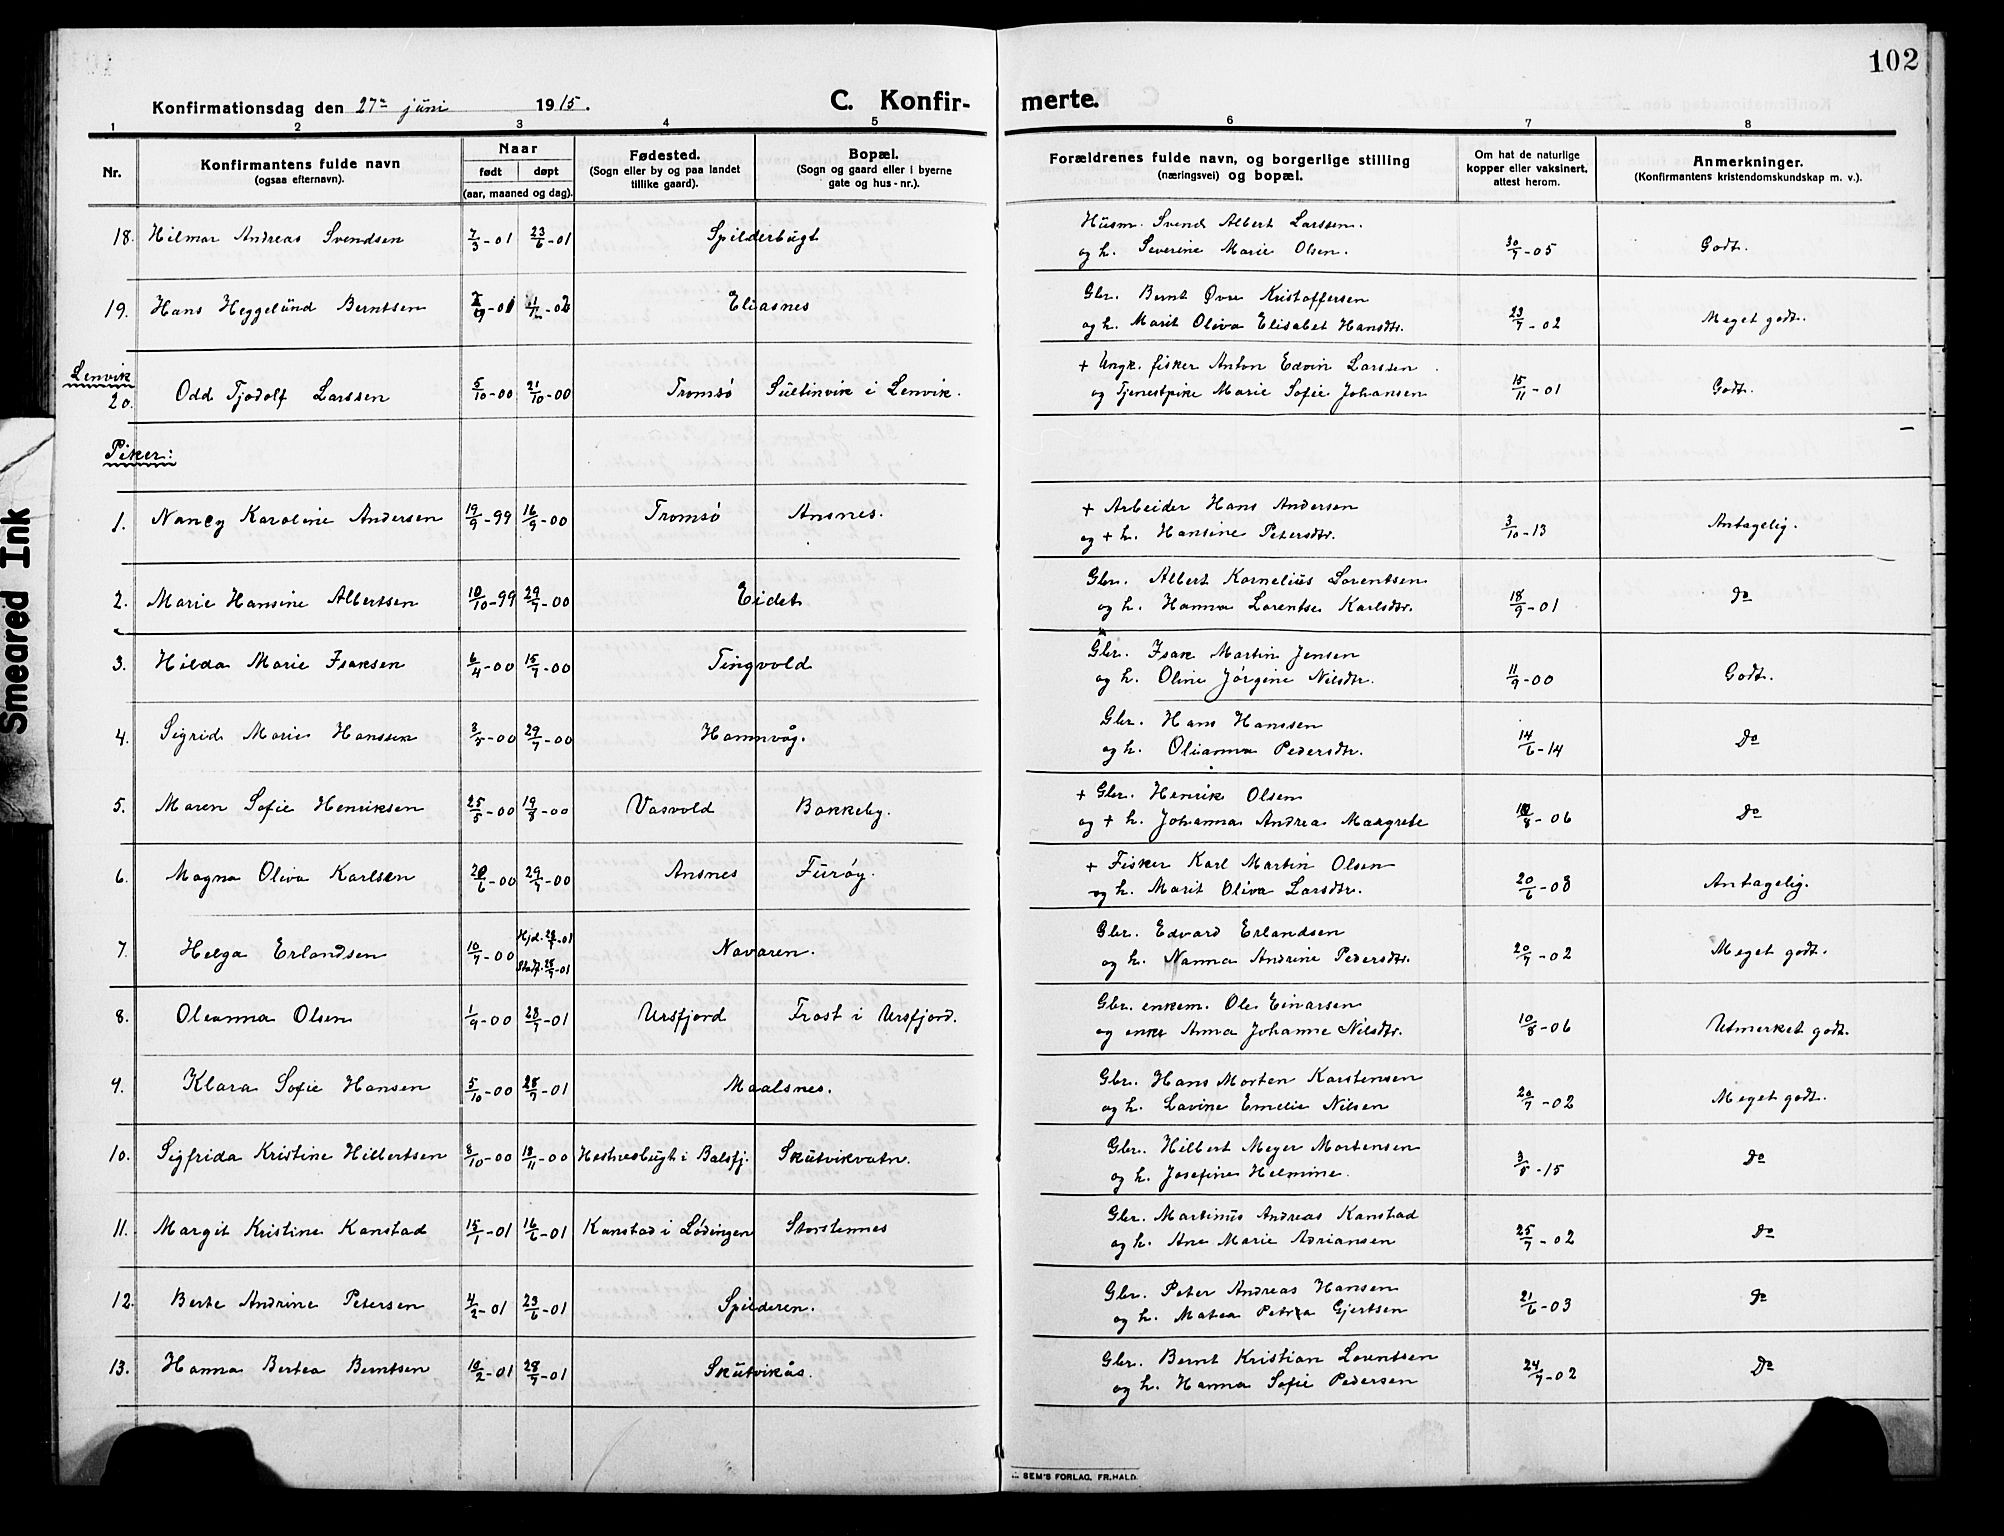 102
Konfirmationsdag den 27de juni 1915.
C. Konfirmerte.
1 2 3 4 5 6 7 8
Nr.
Konfirmantens fulde navn
(ogsaa efternavn).
Naar
født døpt
(aar, maaned og dag).
Fødested.
(Sogn eller by og paa landet
tillike gaard).
Bopæl.
(Sogn og gaard eller i byerne
gate og hus-nr.).
Forældrenes fulde navn, og borgerlige stilling
(næringsvei) og bopæl.
Om hat de naturlige
kopper eller vaksinert,
attest herom.
Anmerkninger.
(Konfirmantens kristendomskundskap m. v.).
18. Hilmar Andreas Svendsen 7/3-01 23/6-01 Spilderbugt Husm. Svend Albert Larssen. 30/7-05 Godt.
og h. Severine Marie Olsen.
19. Hans Heggelund Berntsen Eliasnes Gbr. Bernt Øver Kristoffersen 23/7-02 Meget godt.
og h. Marit Oliva Elisabet Hansdtr.
Lenvik
20. Odd Tjodolf Larssen 5/10-00 21/10-00 Tromsø Sultinvik i Lenvik. + Ungk. fisker Anton Edvin Larssen 15/11-01 Godt.
og Tjenestpike Marie Sofie Johansen
Piker:
1. Nancy Karoline Andersen 19/9-99 16/9-00 Tromsø Ansnes. + Arbeider Hans Andersen 3/10-13 Antagelig.
og + h. Hansine Petersdtr.
2. Marie Hansine Albertsen 10/10-99 29/7-00 Eidet Gbr. Albert Kornelius Lorentsen 18/9-01 do
og h. Hanna Lorentse Karlsdtr.
3. Hilda Marie Isaksen 6/4-00 15/7-00 Tingvold Gbr. Isak Martin Jensen 11/9-00 Godt.
og h. Oline Jørgine Nilsdtr.
4. Sigrid Marie Hanssen 3/5-00 29/7-00 Hamnvåg. Gbr. Hans Hanssen 14/6-14 Do
og h. Olianna Pedersdtr.
5. Maren Sofie Henriksen 25/5-00 19/8-00 Vasvold Bakkeby. + Gbr. Henrik Olsen /8-06 Do
og + h. Johanna Andrea Margrete
6. Magna Oliva Karlsen 20/6-00 29/7-00 Ansnes Furøy. + Fisker Karl Martin Olsen 20/6-08 Antagelig.
og h. Marit Oliva Larsdtr.
7. Helga Erlandsen 10/7-00 Hjd. 28/7-01 Navaren. Gbr. Edvard Erlandsen 20/7-02 Meget godt.
Stadf. 28/7-01 og h. Nanna Andrine Pedersdtr.
8. Oleanna Olsen 1/9-00 28/7-01 Ursfjord Frost i Ursfjord. Gbr. enkem. Ole Einarsen 10/8-06 Utmerket godt.
og enke Anna Johanne Nilsdtr.
9. Klara Sofie Hansen 5/10-00 28/7-01 Maalsnes. Gbr. Hans Morten Karstensen 20/7-02 Meget godt.
og h. Lavine Emelie Nilsen
10. Sigfrida Kristine Hilbertsen 8/10-00 18/11-00 Hestnesbugt i Balsfj. Skutvikvatn. Gbr. Hilbert Meyer Mortensen 3/5-15 do
og h. Josefine Helmine.
11. Margit Kristine Kanstad 15/1-01 16/6-01 Kanstad i Lødingen Storstennes Gbr. Martinus Andreas Kanstad 25/7-02 do
og h. Ane Marie Adriansen
12. Berte Andrine Petersen 4/2-01 23/6-01 Spilderen. Gbr. Peter Andreas Hansen 21/6-03 do
og h. Matea Petra Gjertsen
13. Hanna Bertea Berntsen 10/2-01 28/7-01 Skutvikås. Gbr. Bernt Kristian Lorentsen 24/7-02 Do
og h. Hanna Sofie Pedersen
SEM'S FORLAG, FR.HALD.
Smeared Ink